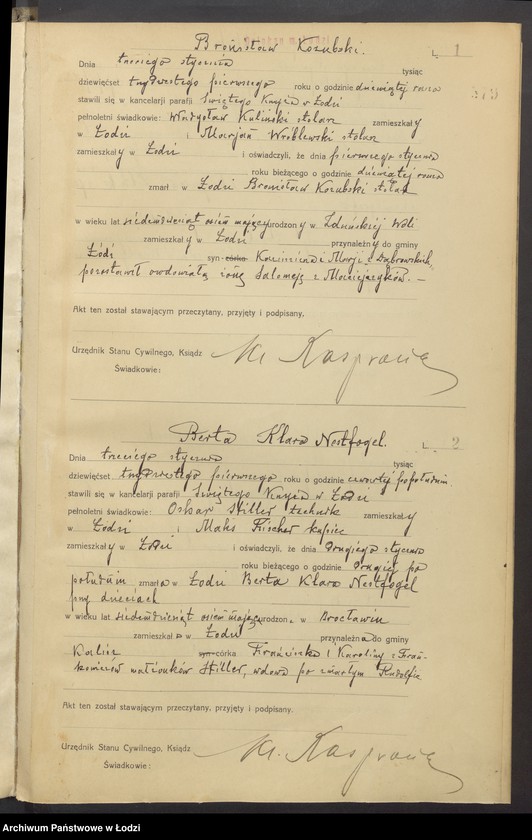 Bronisław Kozubski. L. 1
Dnia trzeciego stycznia tysiąc
dziewięćset trzydziestego pierwszego roku o godzinie dziewiątej rano
stawili się w kancelarji parafji Świętego Krzyża w Łodzi
pełnoletni świadkowie: Władysław Kaliński stolarz zamieszkały
w Łodzi i Marjan Wróblewski stolarz
zamieszkały w Łodzi i oświadczyli, że dnia pierwszego stycznia
roku bieżącego o godzinie dziewiątej rano
zmarł w Łodzi Bronisław Kozubski stolarz
w wieku lat siedemdziesiąt osiem mający urodzony w Zduńskiej Woli
zamieszkały w Łodzi przynależny do gminy
Łódź syn córka Kazimierza i Marji z Dąbrowskich,
pozostawił owdowiałą żonę Salomeję z Maciejczyków. —
Akt ten został stawającym przeczytany, przyjęty i podpisany,
Urzędnik Stanu Cywilnego, Ksiądz
Świadkowie:
Berta Klara Nestfogel. L. 2.
Dnia trzeciego stycznia tysiąc
dziewięćset trzydziestego pierwszego roku o godzinie czwartej popołudniu
stawili się w kancelarji parafji Świętego Krzyża w Łodzi
pełnoletni świadkowie: Oskar Hiller technik zamieszkały
w Łodzi i Maks Fischer kupiec
zamieszkały w Łodzi i oświadczyli, że dnia drugiego stycznia
roku bieżącego o godzinie drugiej po
południu zmarła w Łodzi Berta Klara Nestfogel
przy dzieciach
w wieku lat siedemdziesiąt osiem mająca urodzona w Wrocławiu
zamieszkała w Łodzi przynależna do gminy
Kalisz syn córka Franciszka i Karoliny z
małżonków Hiller, wdowa po zmarłym Rudolfie
Akt ten został stawającym przeczytany, przyjęty i podpisany.
Urzędnik Stanu Cywilnego, Ksiądz
Świadkowie:
Archiwum Państwowe w Łodzi